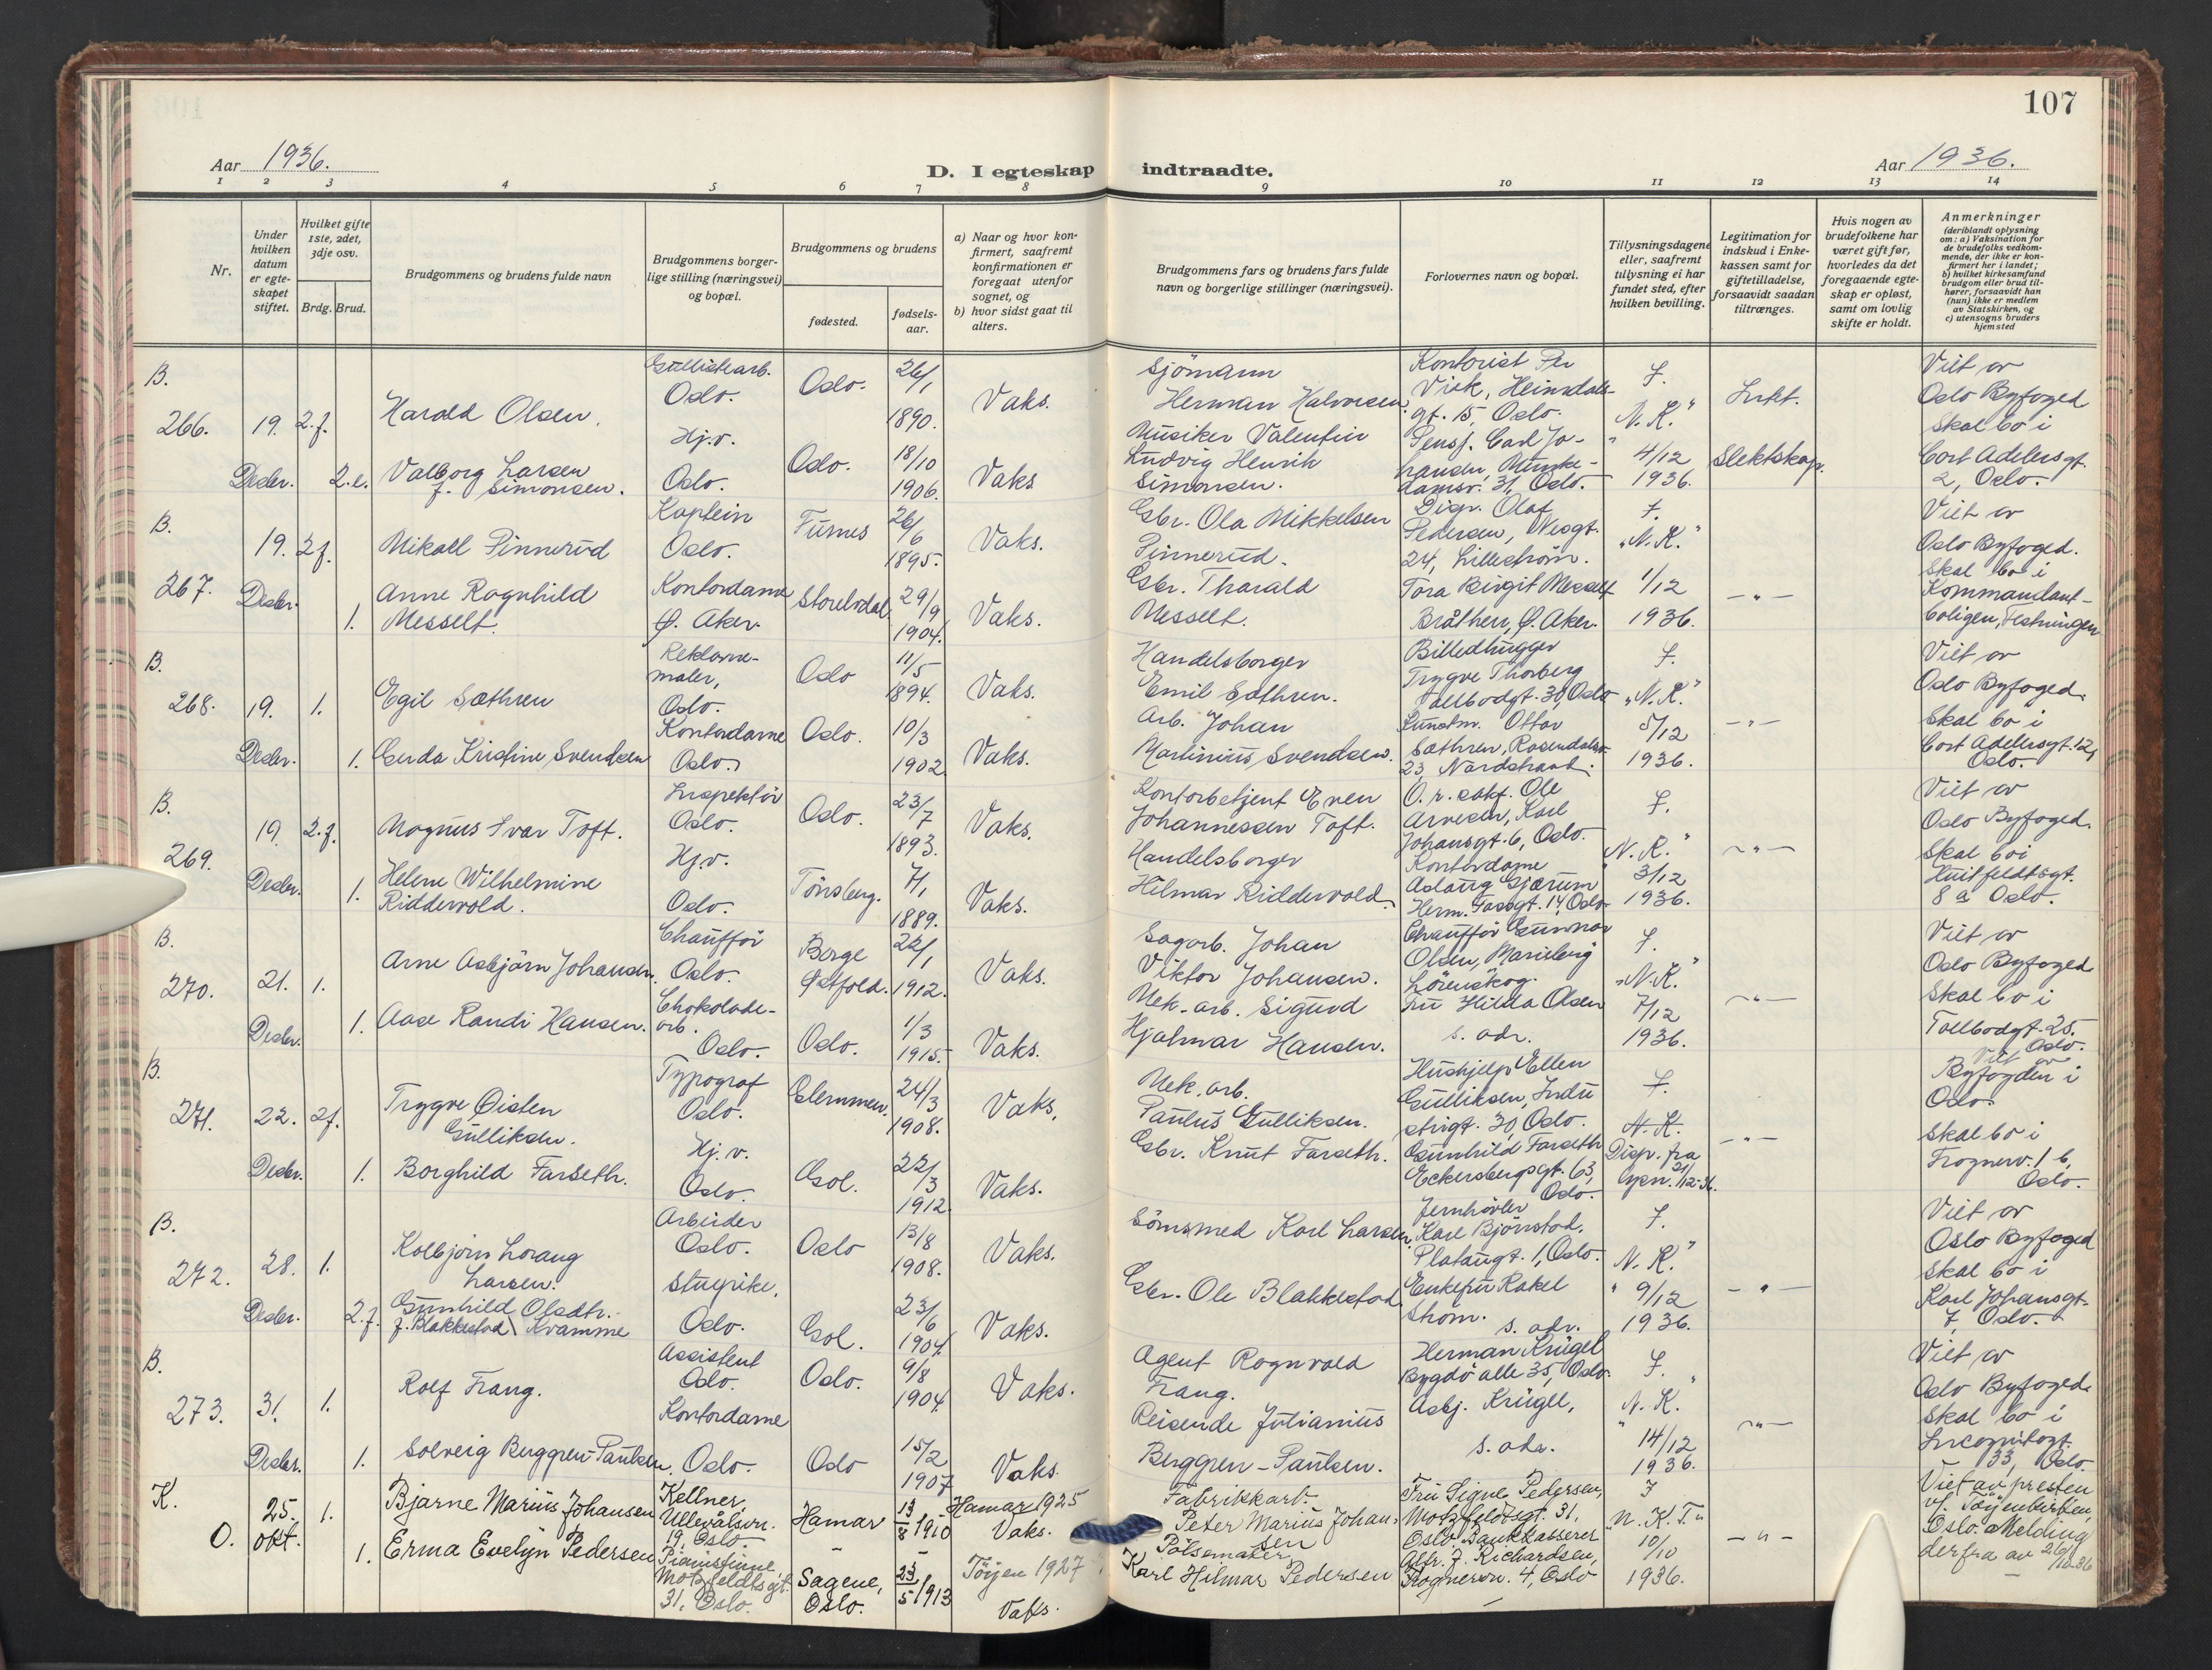 107
Aar 1936.
D. I egteskap indtraadte.
Aar 1936.
1 2 3 4 5 6 7 8 9 10 11 12 13 14
Nr.
Under hvilken datum er egte-skapet stiftet.
Hvilket gifte 1ste, 2det, 3dje osv.
Brdg. Brud.
Brudgommens og brudens fulde navn
Brudgommens borger-lige stilling (næringsvei) og bopæl.
Brudgommens og brudens
fødested.
fødsels-aar.
a) Naar og hvor kon-firmert, saafremt konfirmationen er foregaat utenfor sognet, og
b) hvor sidst gaat til alters.
Brudgommens fars og brudens fars fulde navn og borgerlige stillinger (næringsvei).
Forlovernes navn og bopæl.
Tillysningsdagene eller, saafremt tillysning ei har fundet sted, efter hvilken bevilling.
Legitimation for indskud i Enke-kassen samt for giftetilladelse, forsaavidt saadan tiltrænges.
Hvis nogen av brudefolkene har været gift før, hvorledes da det foregaaende egte-skap er opløst, samt om lovlig skifte er holdt.
Anmerkninger
(deriblandt oplysning om: a) Vaksination for de brudefolks vedkom-mende, der ikke er kon-firmert her i landet; b) hvilket kirkesamfund brudgom eller brud til-hører, forsaavidt han (hun) ikke er medlem av Statskirken, og c) utensogns bruders hjemsted
B.
266. 19. Desbr. 2.f. Harald Olsen.
Oslo. Oslo. 26/1 1890. Vaks.
Sjömann Herman Halvorsen.
Kontorist Per Visk, Heimdals-gt. 15, Oslo.
f. "N.K." 4/12 1936.
Slektskap.
Viet av Oslo Byfoged
Skal bo i Cort Adelersgt. 2, Oslo.
2.e. Valborg Larsen f. Simonsen.
Hj.v. Oslo. Oslo. 18/10 1906. Vaks
Musiker Valentin Ludvig Henrik Simonsen.
31, Oslo.
B.
267. 19. Desbr. 2f. Mikall Pinnerud
Kaptein Oslo. Furnes 26/6 1895. Vaks.
Gbr. Ola Mikkelsen Pinnerud.
Disp. Olaf Pedersen, 24, Lilleström.
f. "N.K." 1/12 1936.
Viet av Oslo Byfoged.
Skal bo i Kommandant-boligen, Festningen
1. Anne Ragnhild Messelt.
Kontordame Ø. Aker. Storelvdal 29/9 1904. Vaks.
Gbr. Tharald Messelt.
Tora Birgit Messelt Bråthen, Ø. Aker.
B.
268. 19. Desbr. 1. Egil Sæthren
Reklame-maler, Oslo. Oslo 11/5 1894. Vaks.
Handelsborger Emil Sæthren.
Billedhugger Trygve Thorberg Tollbodgt. 30, Oslo
f. "N.K." 5/12 1936.
Viet av Oslo Byfoged.
Skal bo i Cort Adelersgt. 12, Oslo.
1. Gerda Kristine Svendsen
Kontordame Oslo. Oslo. 10/3 1902 Vaks.
Arb. Johan Martinius Svendsen.
Kunstm. Ottar Sæthren, 23, Nordstrand.
B.
269. 19. Desbr. 2.f. Magnus Ivar Toft.
Inspektör Oslo. Oslo. 23/7 1893. Vaks.
Kontorbetjent Even Johannessen Toft.
O.r.sakf. Ole Arnesen, Karl Johansgt. 6, Oslo.
f. "N.K." 3/12 1936.
Viet av Oslo Byfoged.
Skal bo i Huitfeldtsgt. 8 a Oslo.
1. Helene Wilhelmine Riddervold.
Hj.v. Oslo. Tönsberg. 7/1 1889. Vaks.
Handelsborger Hilmar Riddervold.
Kontordame Aslaug Gjærum Herm. Fossgt. 14, Oslo
B.
270. 21. Desbr. 1. Arne Asbjörn Johansen.
Chaufför Oslo. Borge Østfold. 22/1 1912. Vaks.
Sagarb. Johan Viktor Johansen.
Chauffør Gunnar Olsen, Marieberg Lörenskog.
f. "N.K." 7/12 1936.
Viet av Oslo Byfoged
Skal bo i Tollbodgt. 25. Oslo.
1. Aase Randi Hansen.
Chokolade-arb. Oslo. Oslo. 1/3 1915. Vaks.
Mek. arb. Sigurd Hjalmar Hansen.
Fru Hilda Olsen s. adr.
B.
271. 22. Desbr. 2f. Trygve Øisten Gulliksen.
Typograf Oslo. Glemmen. 24/3 1908. Vaks.
Mek. arb. Paulus Gulliksen.
Hushjelp Ellen Gulliksen, Industrigt. 30, Oslo.
f. N.K. Disp. fra lysn. 21/12-36.
Viet av Byfogden i Oslo.
Skal bo i Frognerv. 1 b, Oslo.
1. Borghild Farseth.
Hj.v. Oslo. Gol. 22/3 1912. Vaks.
Gbr. Knut Farseth.
Gunhild Farseth Eckersbergsgt. 63, Oslo.
B.
272. 28. Desbr. 1. Kolbjörn Lorang Larsen.
Arbeider Oslo. Oslo 13/8 1908. Vaks.
Sömsmed Karl Larsen.
Jernhøvler Karl Björnstad, Platougt. 1, Oslo.
f. "N.K." 9/12 1936.
Viet av Oslo Byfoged
Skal bo i Karl Johansgt. 7, Oslo.
2.f. Gunhild Olsdtr. f. Blakkestad Kvamme
Stuepike, Oslo. Gol. 23/6 1904. Vaks.
Gbr. Ole Blakkestad
Enkefru Rakel Strøm. s. adr.
B.
273. 31. Desbr. 1. Rolf Frang.
Assistent Oslo. Oslo. 9/8 1904. Vaks.
Agent Ragnvald Frang.
Herman Krügel Bygdö alle 35, Oslo.
f. "N.K." 14/12 1936.
Viet av Oslo Byfoged.
Skal bo i Incognitogt. 33, Oslo.
1. Solveig Berggren-Paulsen.
Kontordame Oslo. Oslo 15/2 1907 Vaks.
Reisende Julianius Berggren-Paulsen.
Asbj. Krügel, s. adr.
K.
O. 25. okt. 1. Bjarne Marius Johansen
Kellner, Ullevålsvn. 19, Oslo. Hamar 13/8 1910 Hamar 1925 Vaks.
Fabrikkarb. Peter Marius Johansen
Fru Signe Pedersen, Motzfeldtsgt. 31, Oslo.
f "N.K.T." 10/10 1936.
Viet av presten v/ Töyenkirken, Oslo. Melding derfra av 26/10-36
1. Erma Evelyn Pedersen
Pianistinne, Motzfeldtsgt. 31, Oslo. Sagene, Oslo. 23/5 1913 Töyen 1927 Vaks.
Pölsemaker Karl Hilmar Pedersen
Bankkasserer Alfr. J. Richardsen, Frognervn. 4, Oslo